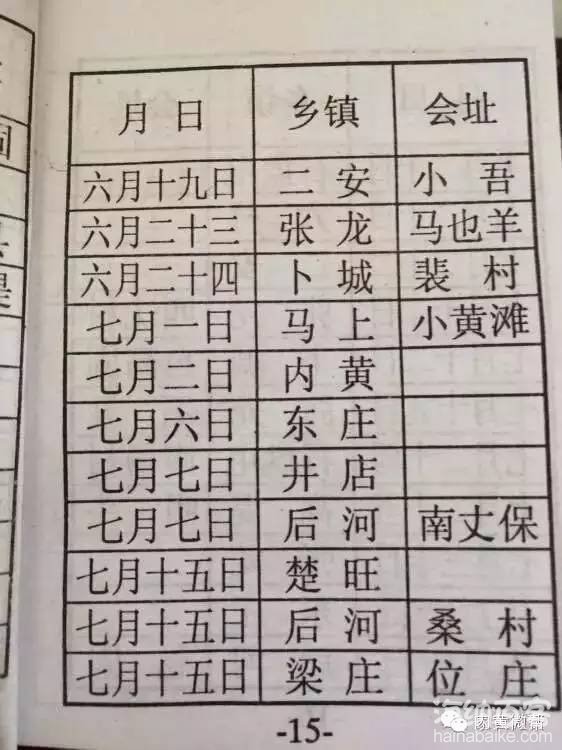 月 日 乡镇 会址
六月十九日 二安 小吾
六月二十三 张龙 马也羊
六月二十四 卜城 裴村
七月一日 马上 小黄滩
七月二日 内黄
七月六日 东庄
七月七日 井店
七月七日 后河 南丈保
七月十五日 楚旺
七月十五日 后河 桑村
七月十五日 梁庄 位庄
-15-
hainabaike.com